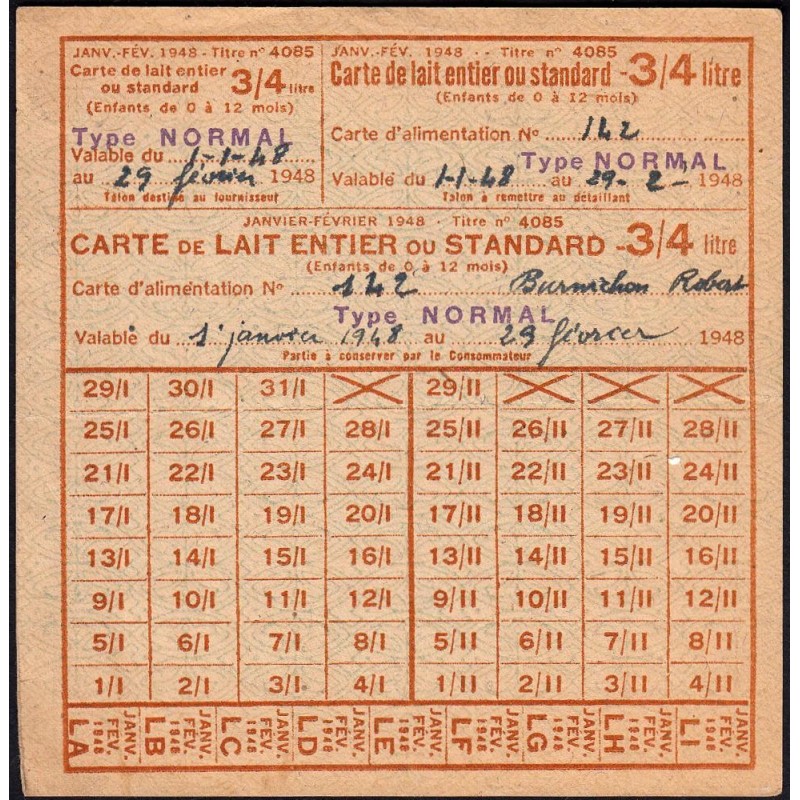 JANV.-FÉV. 1948 - Titre nº 4085
Carte de lait entier
ou standard 3/4 litre
(Enfants de 0 à 12 mois)
Type NORMAL
Valable du 1-1-48
au 29 février 1948
Talon destiné au fournisseur
JANV.-FÉV. 1948 - - Titre nº 4085
Carte de lait entier ou standard - 3/4 litre
(Enfants de 0 à 12 mois)
Carte d'alimentation Nº 142
Type NORMAL
Valable du 1-1-48 au 29-2- 1948
Talon à remettre au détaillant
JANVIER-FÉVRIER 1948 - Titre nº 4085
CARTE DE LAIT ENTIER OU STANDARD - 3/4 litre
(Enfants de 0 à 12 mois)
Carte d'alimentation Nº 142 Burnichon Robert
Type NORMAL
Valable du 1r janvier 1948 au 29 février 1948
Partie à conserver par le Consommateur
29/I 30/I 31/I 29/II
25/I 26/I 27/I 28/I 25/II 26/II 27/II 28/II
21/I 22/I 23/I 24/I 21/II 22/II 23/II 24/II
17/I 18/I 19/I 20/I 17/II 18/II 19/II 20/II
13/I 14/I 15/I 16/I 13/II 14/II 15/II 16/II
9/I 10/I 11/I 12/I 9/II 10/II 11/II 12/II
5/I 6/I 7/I 8/I 5/II 6/II 7/II 8/II
1/I 2/I 3/I 4/I 1/II 2/II 3/II 4/II
JANV. FÉV. 1948 LA
JANV. FÉV. 1948 LB
JANV. FÉV. 1948 LC
JANV. FÉV. 1948 LD
JANV. FÉV. 1948 LE
JANV. FÉV. 1948 LF
JANV. FÉV. 1948 LG
JANV. FÉV. 1948 LH
JANV. FÉV. 1948 LI